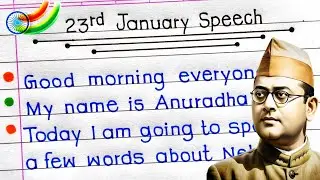 23rd January Speech
Good morning everyon
My name is Anuradha
Today I am going to sp
a few words about Ne